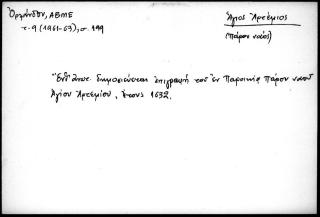 Ὀρλάνδου, ΑΒΜΕ
τ. 9 (1961-63), σ. 199
Ἅγιος Ἀρτέμιος
(Πάρου ναός)
Ἔνθ' ἄνω δημοσιεύεται ἐπιγραφή τοῦ ἐν Παροικίᾳ Πάρου ναοῦ
Ἁγίου Ἀρτεμίου, ἔτους 1632.